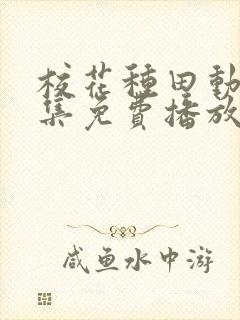 校花種田動
集免費播放
咸鱼水中游